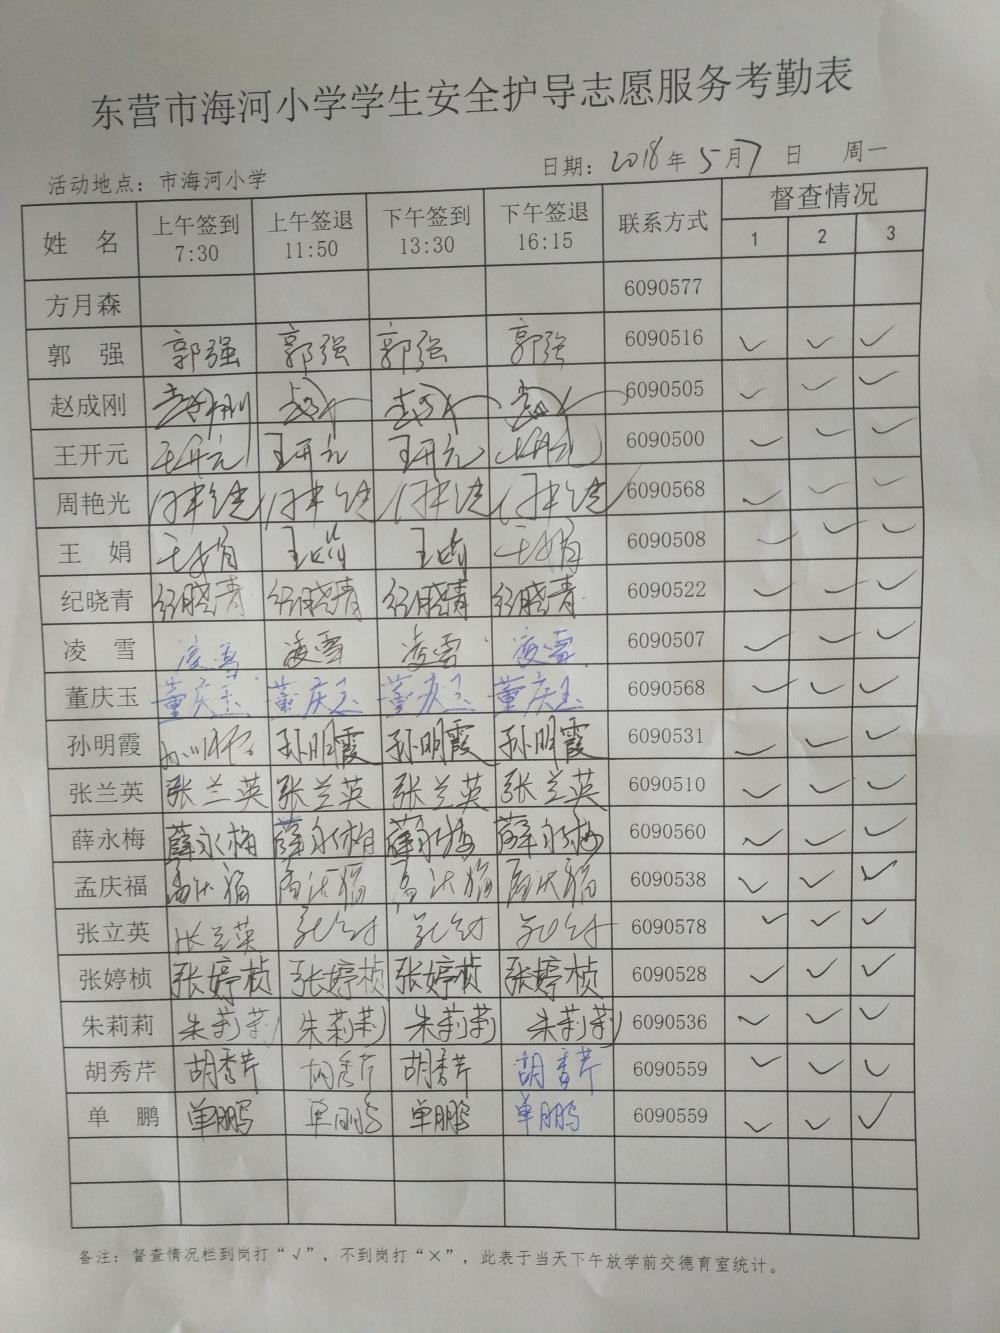 东营市海河小学学生安全护导志愿服务考勤表
活动地点：市海河小学 日期：2018年5月7日 周一
姓 名 上午签到 7:30 上午签退 11:50 下午签到 13:30 下午签退 16:15 联系方式 督查情况 1 2 3
方月森 6090577
郭 强 郭强 郭强 郭强 郭强 6090516 ✓ ✓ ✓
赵成刚 6090505 ✓ ✓ ✓
王开元 王开元 王开元 王开元 王开元 6090500 ✓ ✓ ✓
周艳光 6090568 ✓ ✓ ✓
王 娟 王娟 王娟 王娟 王娟 6090508 ✓ ✓ ✓
纪晓青 纪晓青 纪晓青 纪晓青 纪晓青 6090522 ✓ ✓ ✓
凌 雪 凌雪 凌雪 凌雪 凌雪 6090507 ✓ ✓ ✓
董庆玉 董庆玉 董庆玉 董庆玉 董庆玉 6090568 ✓ ✓ ✓
孙明霞 孙明霞 孙明霞 孙明霞 孙明霞 6090531 ✓ ✓ ✓
张兰英 张兰英 张兰英 张兰英 张兰英 6090510 ✓ ✓ ✓
薛永梅 薛永梅 薛永梅 薛永梅 薛永梅 6090560 ✓ ✓ ✓
孟庆福 孟庆福 孟庆福 孟庆福 孟庆福 6090538 ✓ ✓ ✓
张立英 6090578 ✓ ✓ ✓
张婷桢 张婷桢 张婷桢 张婷桢 张婷桢 6090528 ✓ ✓ ✓
朱莉莉 朱莉莉 朱莉莉 朱莉莉 朱莉莉 6090536 ✓ ✓ ✓
胡秀芹 胡秀芹 胡秀芹 胡秀芹 胡秀芹 6090559 ✓ ✓ ✓
单 鹏 单鹏 单鹏 单鹏 单鹏 6090559 ✓ ✓ ✓
备注：督查情况栏到岗打“√”，不到岗打“×”，此表于当天下午放学前交德育室统计。